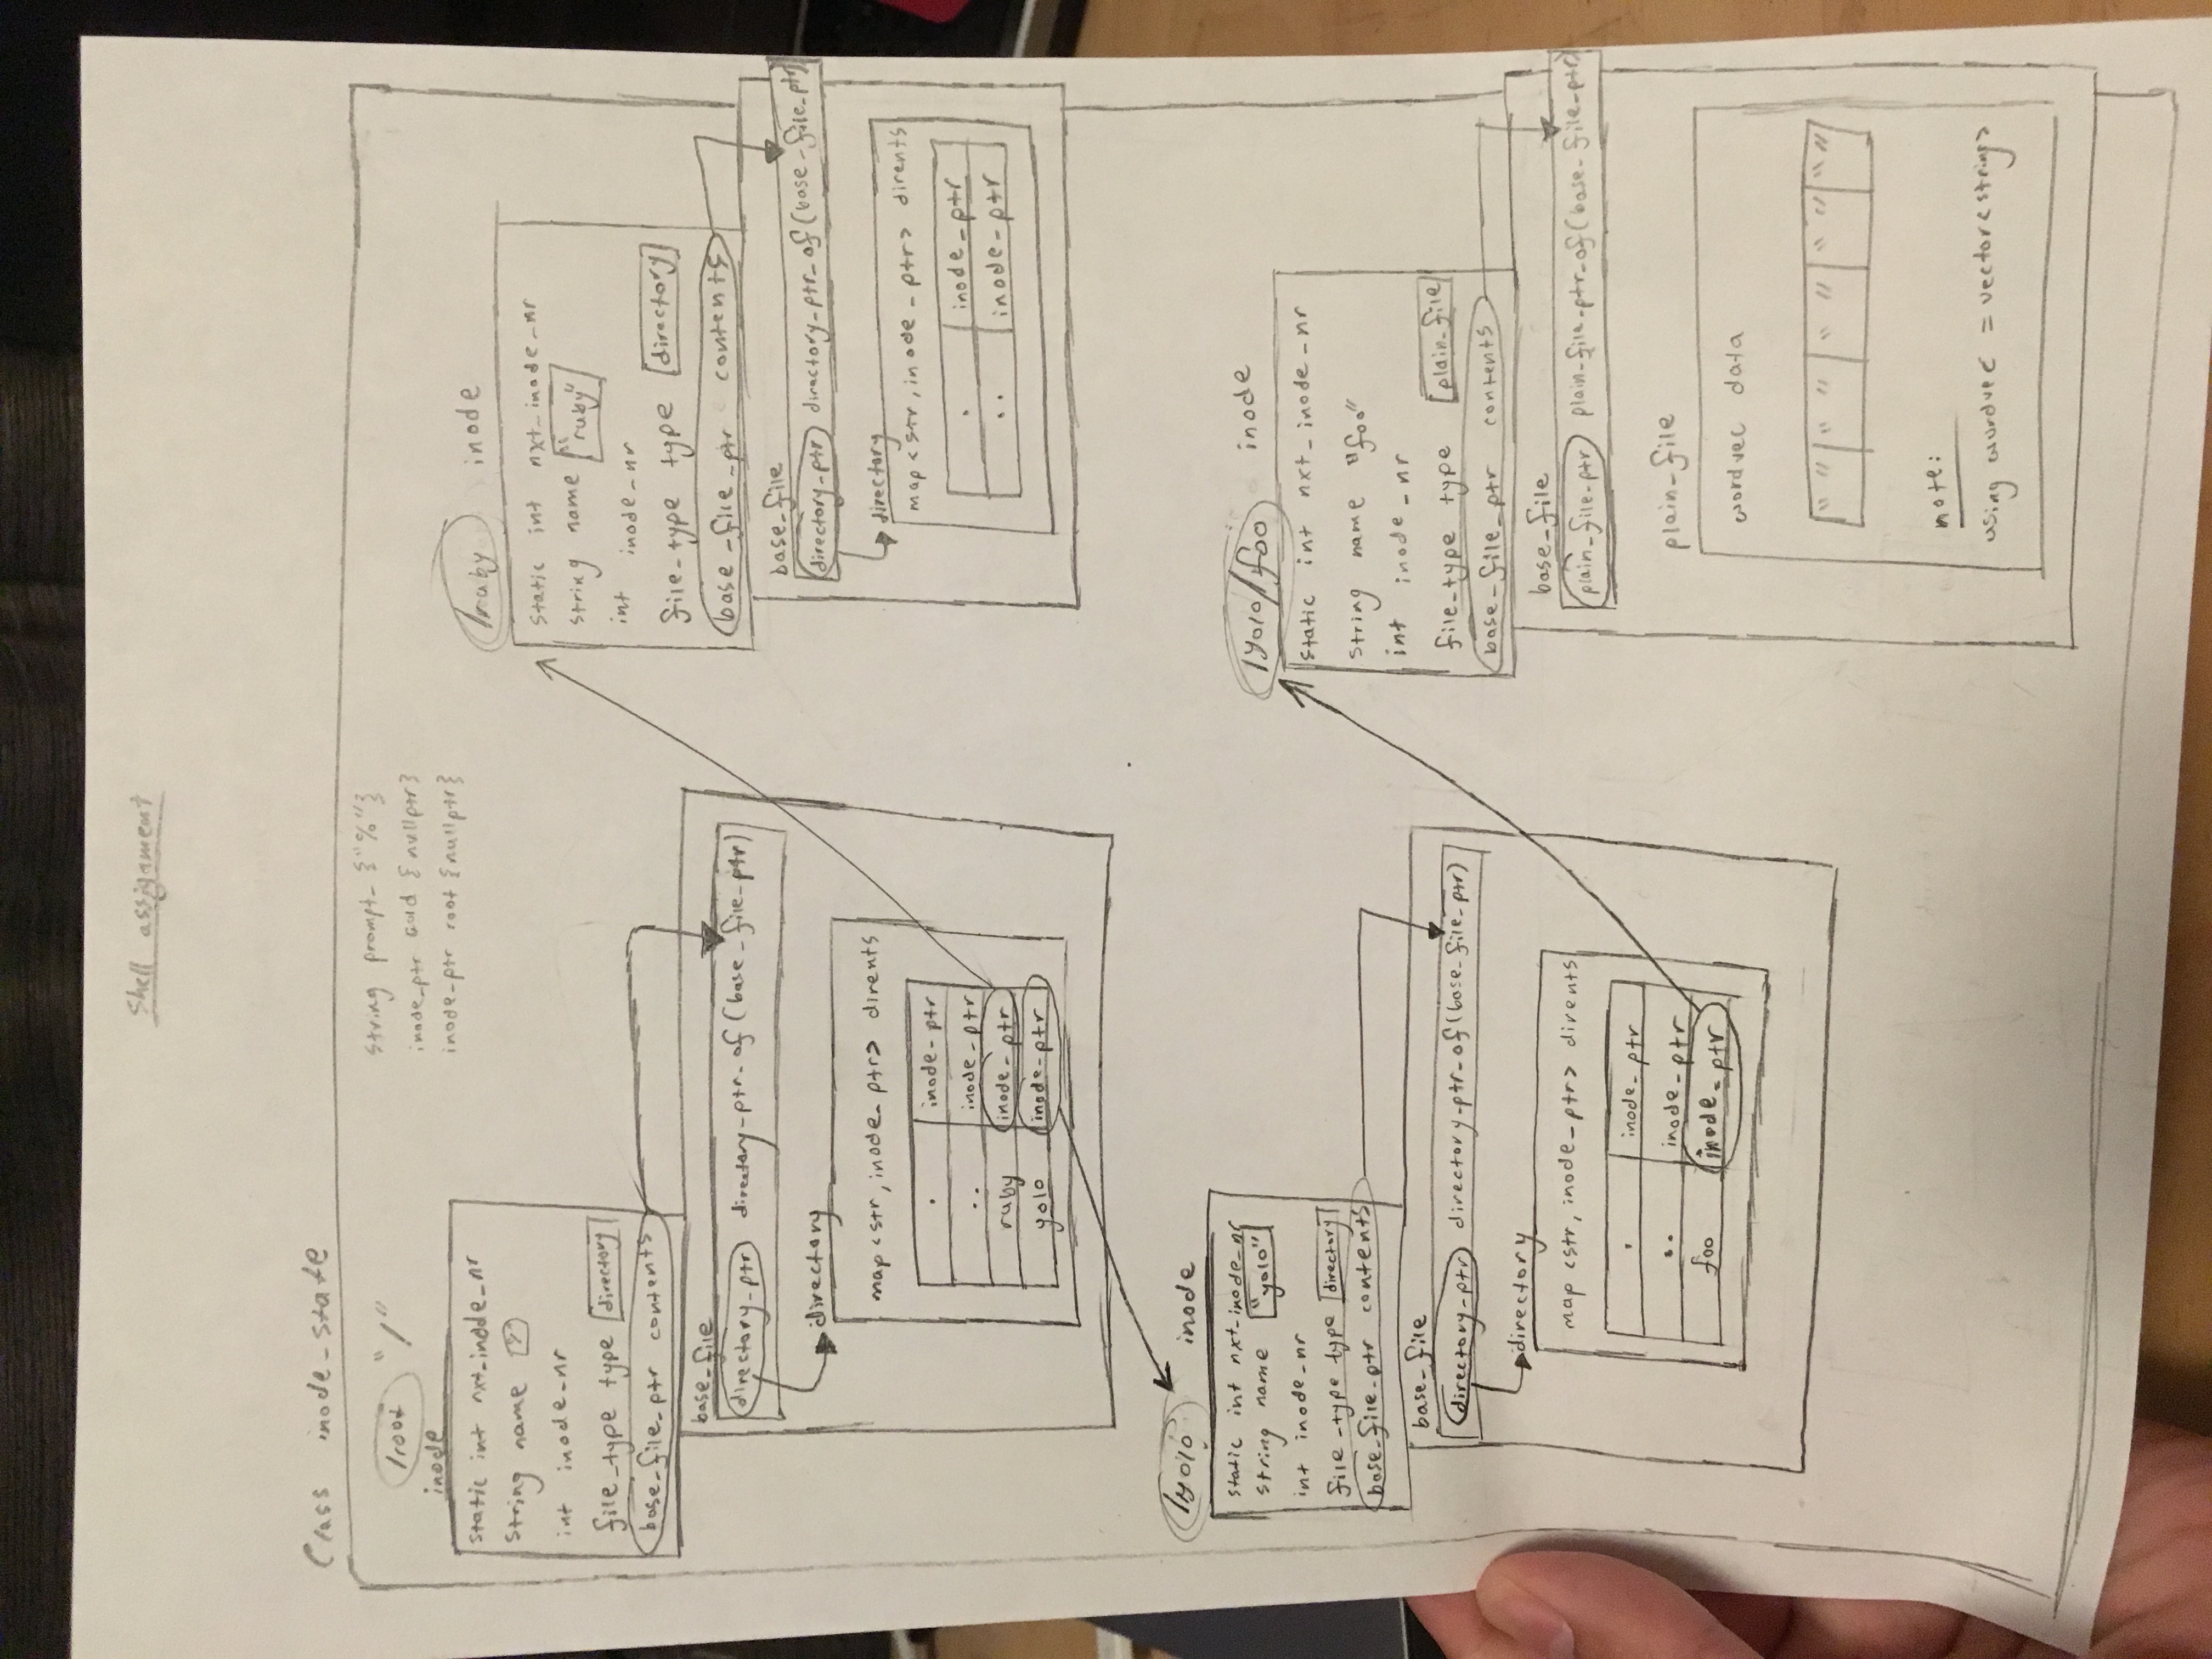 Shell assignment
Class inode_state
/root "/"
string prompt_ {"%"}
inode_ptr cwd {nullptr}
inode_ptr root {nullptr}
inode
static int nxt_inode_nr
string name
int inode_nr
file_type type directory
base_file_ptr contents
base_file
directory_ptr directory_ptr_of (base_file_ptr)
directory
map <str, inode_ptr> dirents
. inode_ptr
.. inode_ptr
ruby inode_ptr
yolo inode_ptr
/ruby inode
static int nxt_inode_nr
string name "ruby"
int inode_nr
file_type type directory
base_file_ptr contents
base_file
directory_ptr directory_ptr_of (base_file_ptr)
directory
map <str, inode_ptr> dirents
. inode_ptr
.. inode_ptr
/yolo inode
static int nxt_inode_nr
string name "yolo"
int inode_nr
file_type type directory
base_file_ptr contents
base_file
directory_ptr directory_ptr_of (base_file_ptr)
directory
map <str, inode_ptr> dirents
. inode_ptr
.. inode_ptr
foo inode_ptr
/yolo/foo inode
static int nxt_inode_nr
string name "foo"
int inode_nr
file_type type plain_file
base_file_ptr contents
base_file
plain_file_ptr plain_file_ptr_of (base_file_ptr)
plain_file
wordvec data
" " " " " " " " " "
note:
using wordvec = vector<string>